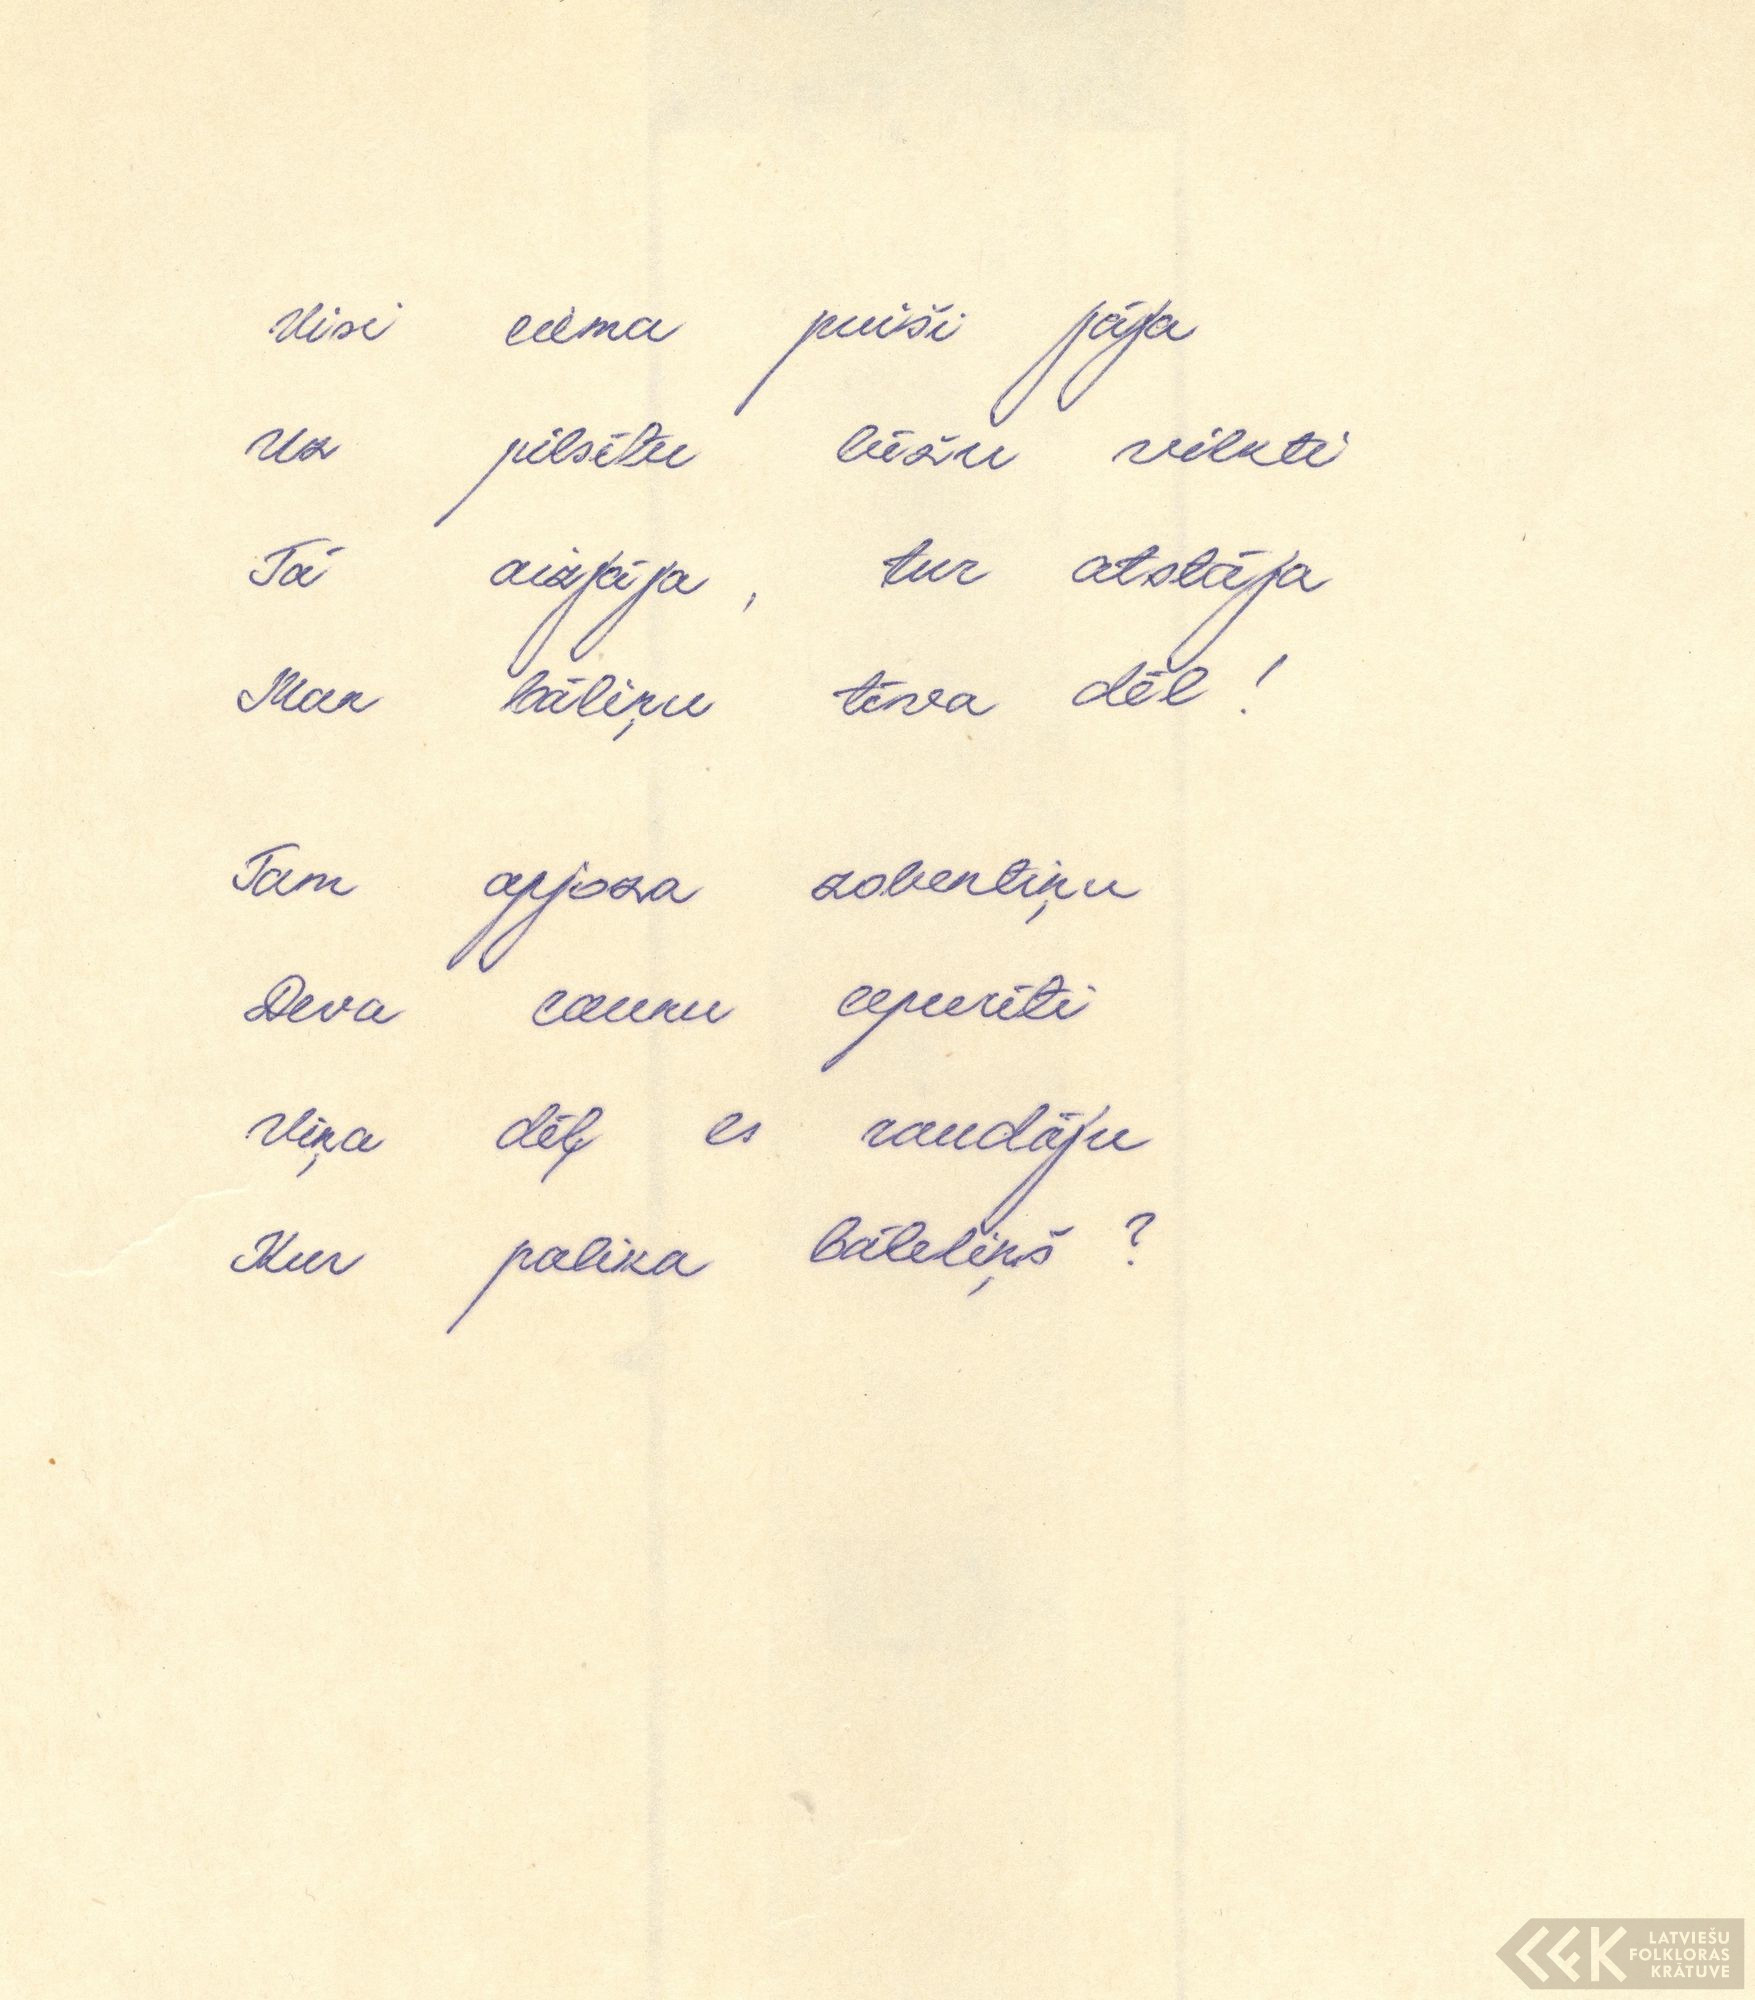 Visi ciema puiši jāja
Uz pilsētu lēžu vilkti
Tā aizjāja, tur atstāja
Man bāliņu tēva dēl!
Tam apjoza zobentiņu
Deva cauņu cepurīti
Viņa dēļ es raudāju
Kur palika bāleliņš?
LATVIEŠU
FOLKLORAS
KRĀTUVE